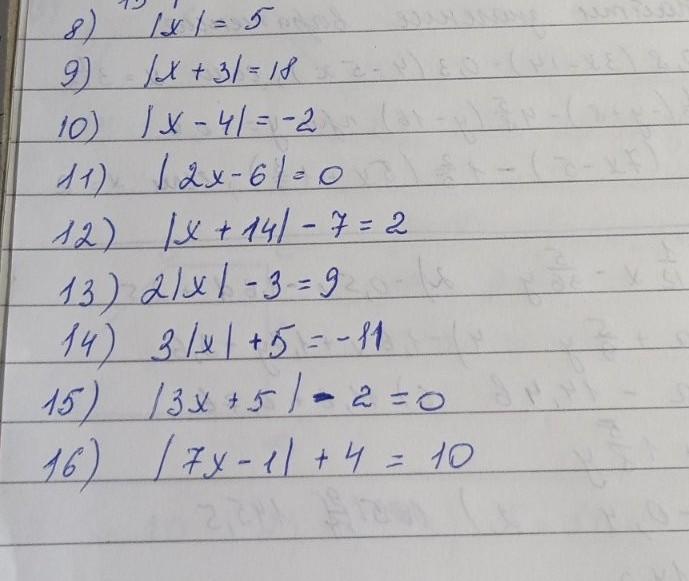 8) |x| = 5
9) |x + 3| = 18
10) |x - 4| = -2
11) |2x - 6| = 0
12) |x + 14| - 7 = 2
13) 2|x| - 3 = 9
14) 3|x| + 5 = -11
15) |3x + 5| - 2 = 0
16) |7x - 1| + 4 = 10